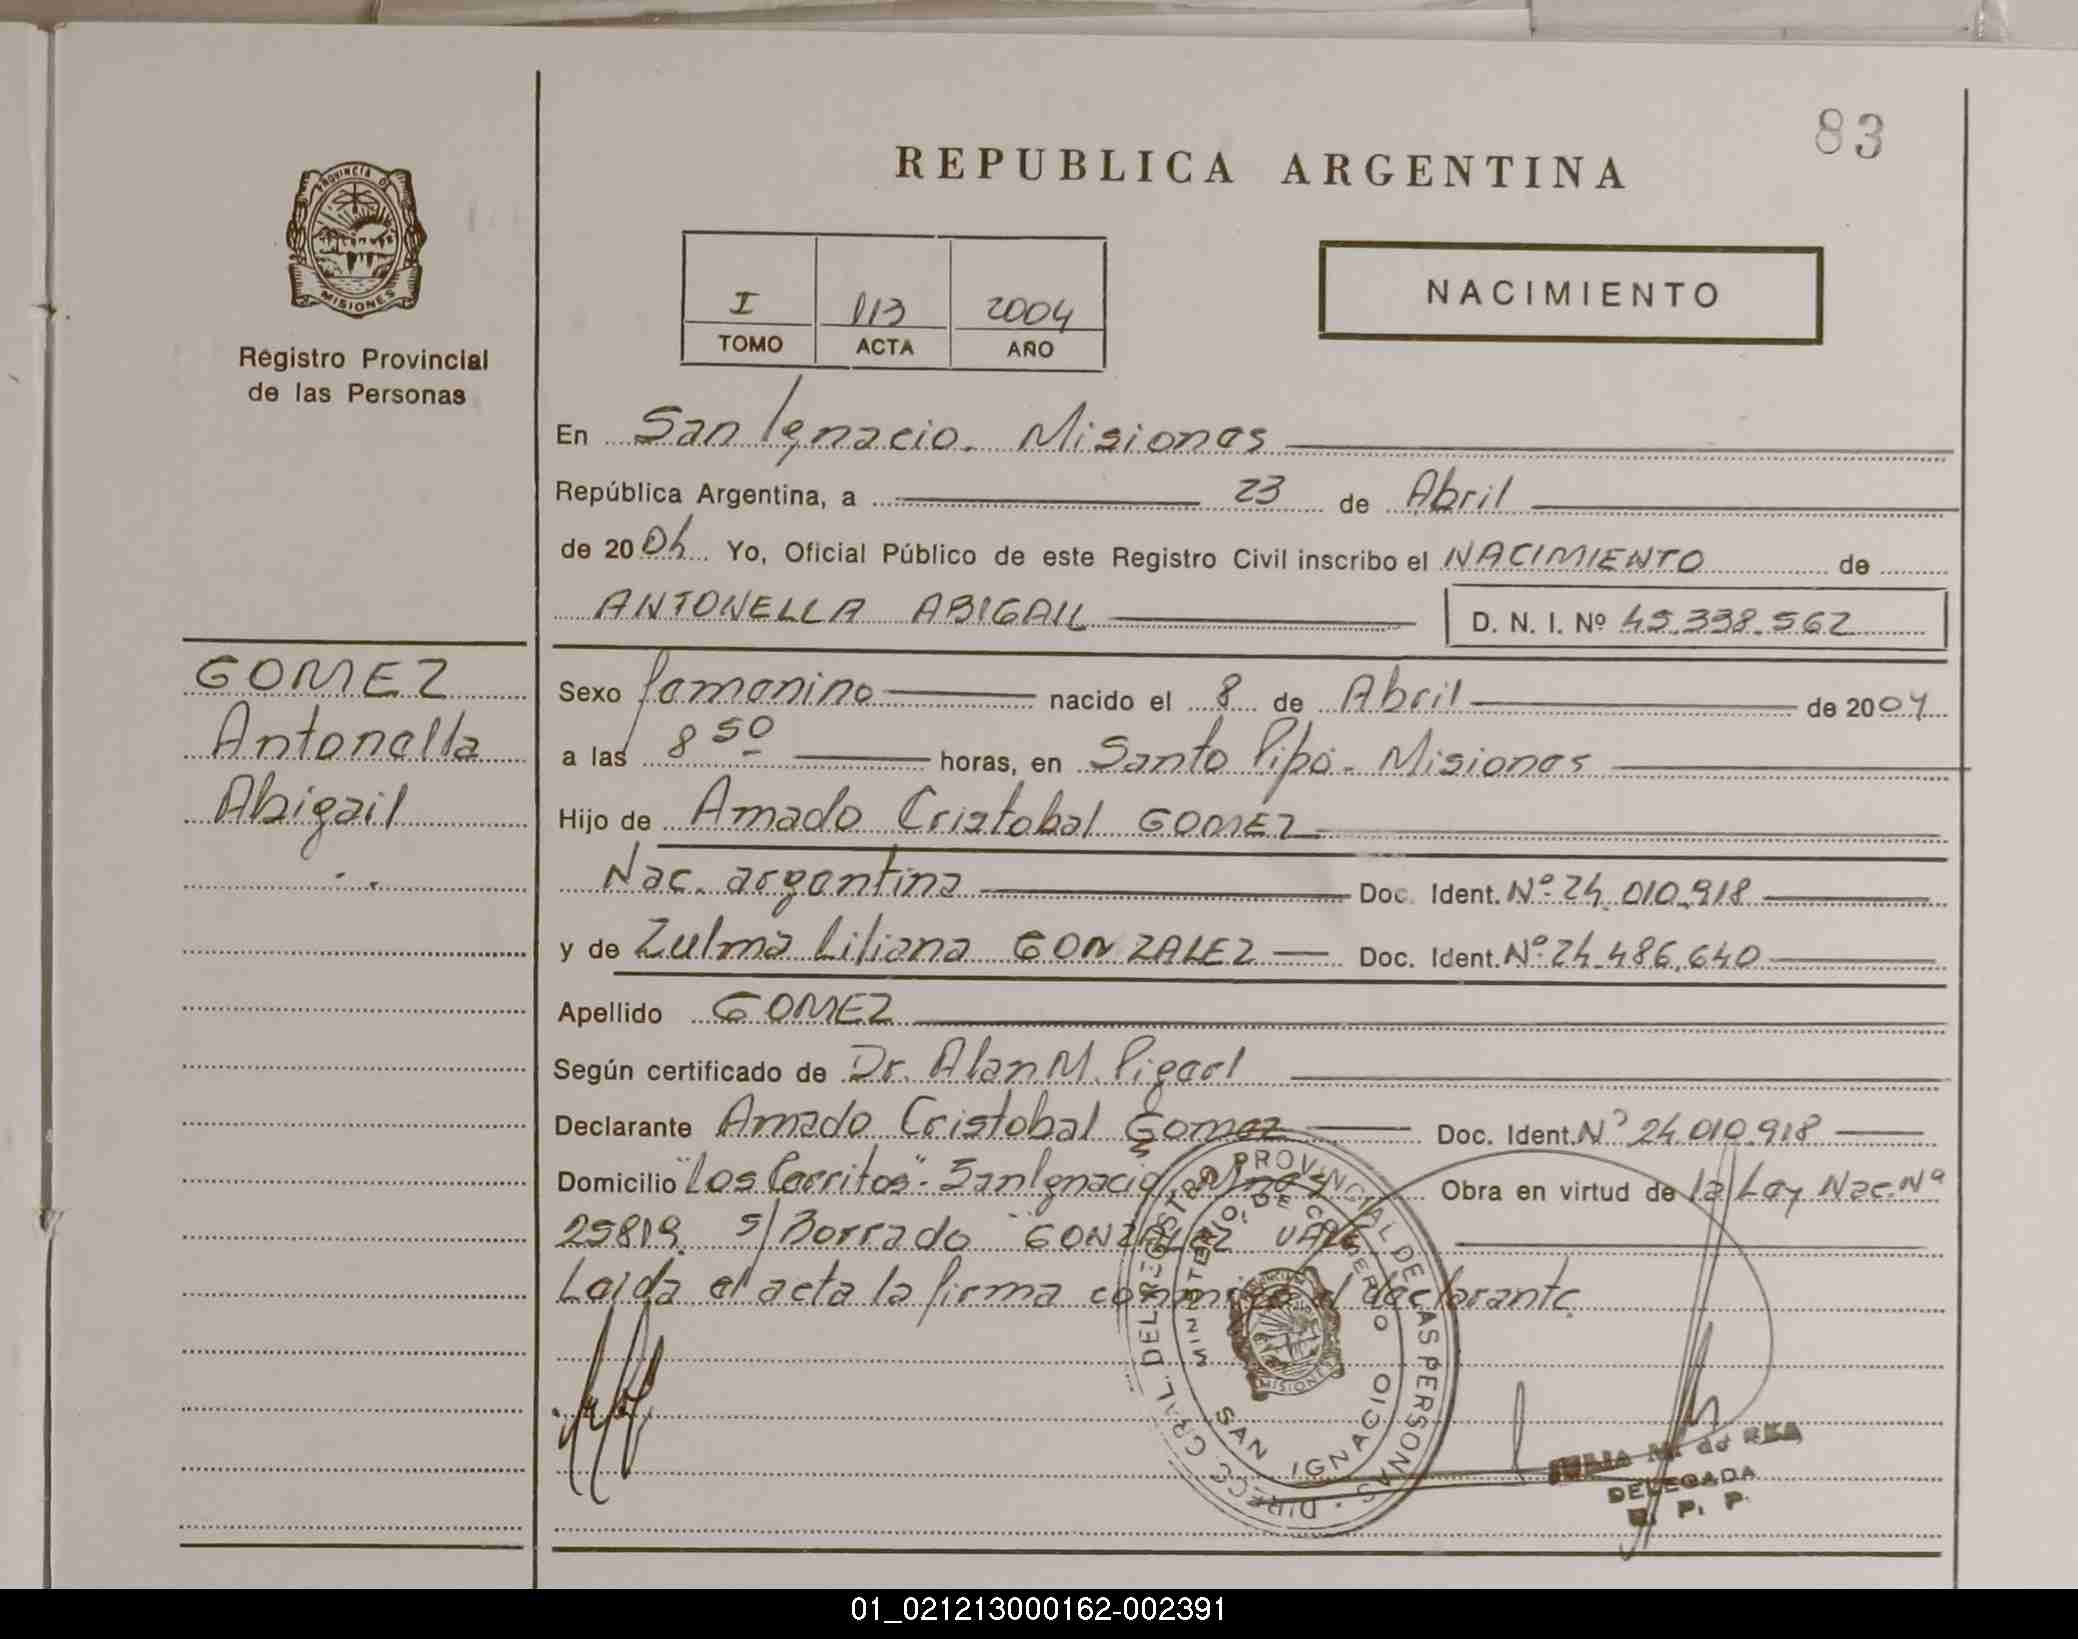 83
REPUBLICA ARGENTINA
PROVINCIA DE
MISIONES
Registro Provincial
de las Personas
I 113 2004
TOMO ACTA AÑO
NACIMIENTO
En San Ignacio. Misiones
República Argentina, a 23 de Abril
de 2004 Yo, Oficial Público de este Registro Civil inscribo el NACIMIENTO de
ANTONELLA ABIGAIL D. N. I. Nº 45.338.562
GOMEZ
Antonella
Abigail
Sexo femenino nacido el 8 de Abril de 2004
a las 8 50 horas, en Santo Pipó - Misiones
Hijo de Amado Cristobal GOMEZ
Nac. argentina Doc. Ident. Nº 24.010.918
y de Zulma Liliana GONZALEZ Doc. Ident. Nº 24.486.640
Apellido GOMEZ
Según certificado de Dr. Alan M.
Declarante Amado Cristobal Gomez Doc. Ident. Nº 24.010.918
Domicilio "Los Cerritos" - San Ignacio, Mnes Obra en virtud de la Ley Nac. Nº
25819. s/Borrado "GONZALEZ VALE
Leida el acta la firma conmigo el declarante.
DIRECC. GRAL. DEL REGISTRO PROVINCIAL DE LAS PERSONAS
MINISTERIO DE GOBIERNO
MISIONES
SAN IGNACIO
JULIA M. de REA
DELEGADA
R. P. P.
01_021213000162-002391